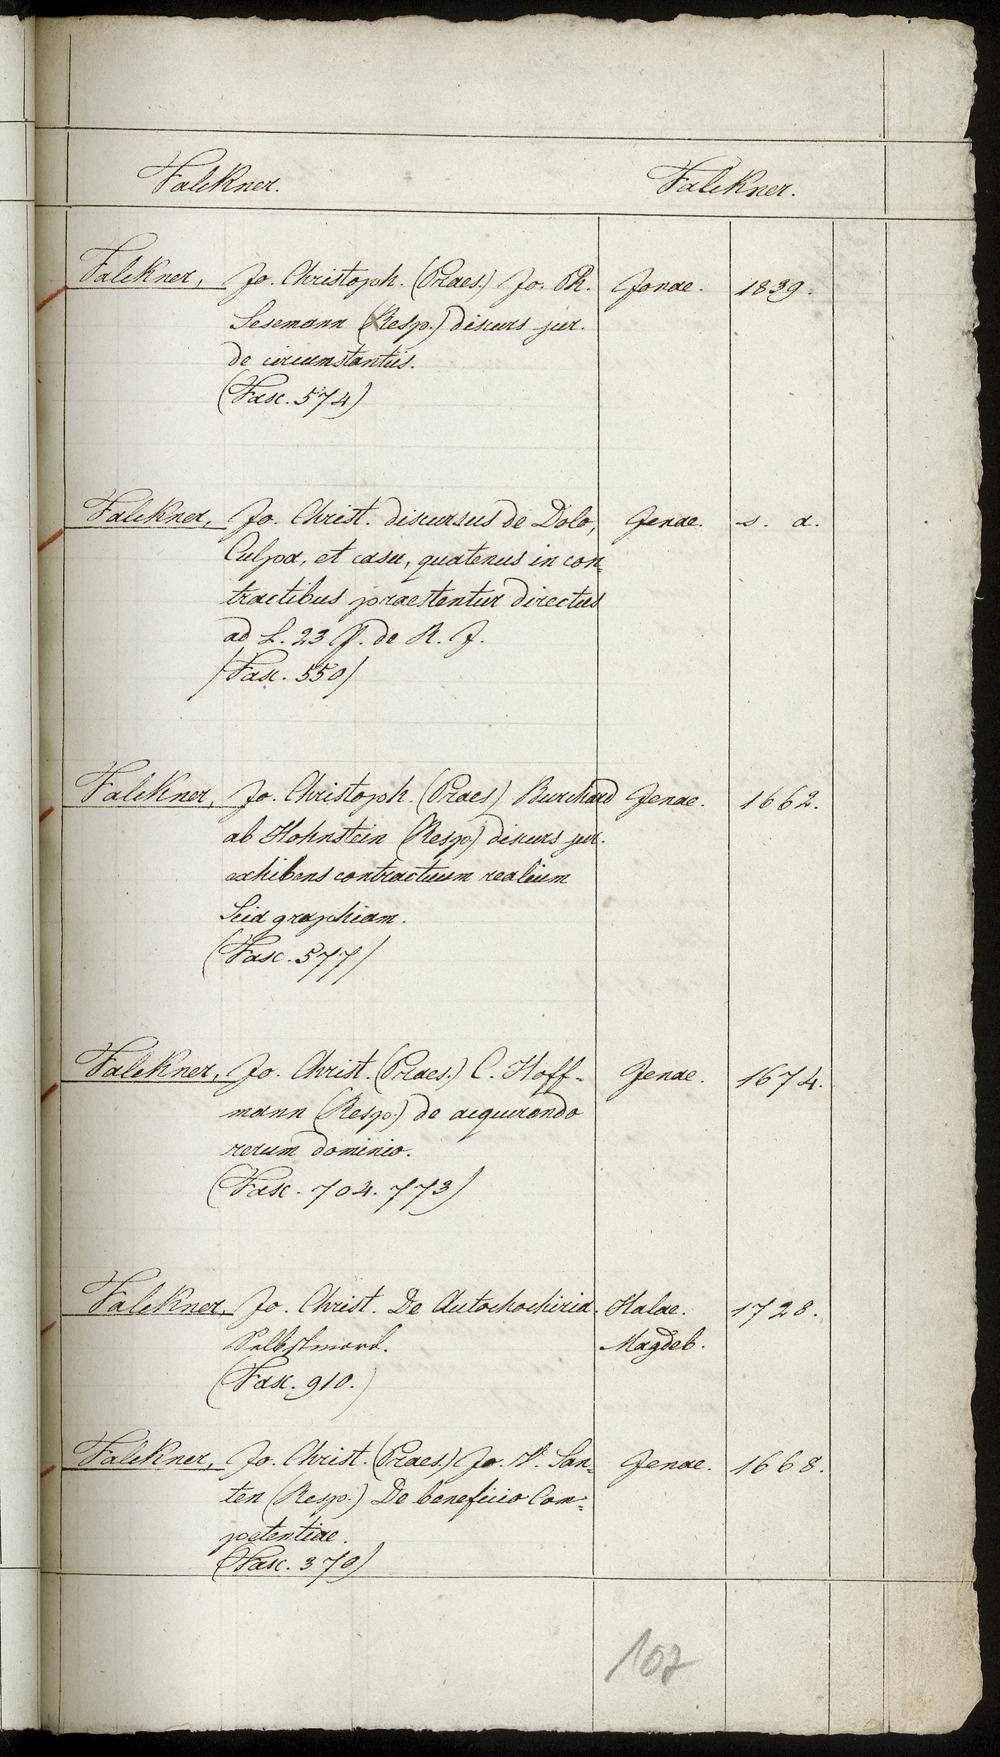 Falckner. Falckner.
Falckner, Jo. Christoph. (Praes.) Jo. Ph. Jenae. 1839.
Sesemann (Resp.) discurs jur.
de circumstantiis.
(Fasc. 574)
Falckner, Jo. Christ. discursus de Dolo, Jenae. s. a.
Culpa, et casu, quatenus in con-
tractibus praestentur directus
ad L. 23 ff. de R. J.
(Fasc. 550)
Falckner, Jo. Christoph. (Praes) Burchard Jenae. 1662.
ab Hohnstein (Resp.) discurs jur.
exhibens contractuum realium
Sciagraphiam.
(Fasc. 577)
Falckner, Jo. Christ. (Praes.) C. Hoff- Jenae. 1674.
mann (Resp.) de acquirendo
rerum dominio.
(Fasc. 704. 773)
Falckner, Jo. Christ. De Autochochiria. Halae. 1728.
Selbstmord. Magdeb.
(Fasc. 910.)
Falckner, Jo. Christ. (Praes.) Jo. San- Jenae. 1668.
ten (Resp.) De beneficio Com-
petentiae.
(Fasc. 379)
107